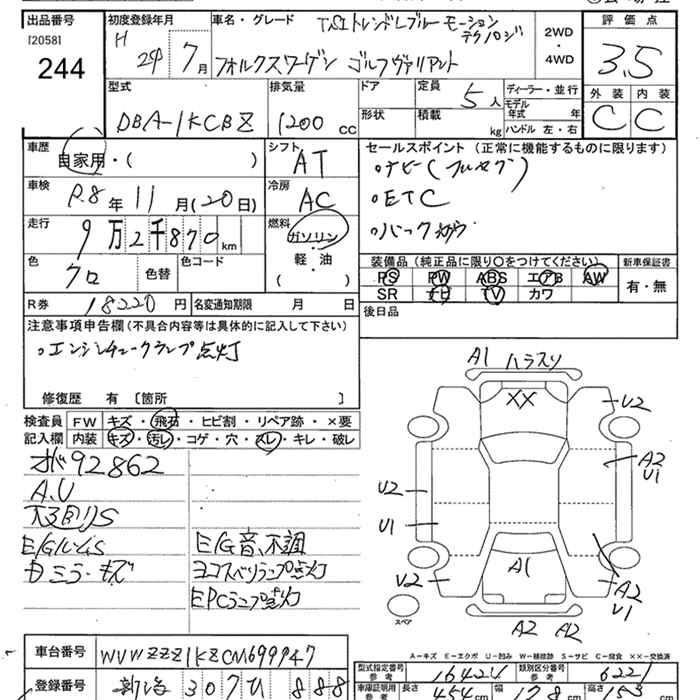 出品番号
[2058]
244
初度登録年月
H 24 7月
車名・グレード
TSI トレンドLブルーモーション
テクノロジ
フォルクスワーゲン ゴルフヴァリアント
2WD
・
4WD
評価点
3.5
型式
DBA-1KCBZ
排気量
1200 cc
ドア
形状
定員
5人
積載
kg
ディーラー・並行
モデル
年式 年
ハンドル 左・右
外装 内装
C C
車歴
自家用・( )
シフト
AT
セールスポイント(正常に機能するものに限ります)
・ナビ(フルセグ)
・ETC
車検
R.8年11月(20日)
冷房
AC
走行
9万2千870km
燃料
ガソリン
・
軽・油
( )
色
クロ
色替
色コード
装備品(純正品に限り○をつけてください)
PS PW ABS エアB AW
SR ナビ TV カワ
新車保証書
有・無
R券 18220円
名変通知期限 月 日
後日品
注意事項申告欄(不具合内容等は具体的に記入して下さい)
・エンジンチェックランプ点灯
修復歴 有〔箇所 〕
検査員
記入欄
FW キズ・飛石・ヒビ割・リペア跡・×要
内装 キズ・汚レ・コゲ・穴・スレ・キレ・破レ
92862
A.U
E/G音、不調
ヨコスベリランプ点灯
EPCランプ点灯
A1
XX
U2
A2
U1
U2
U1
A1
U2
A2
U1
A2 A2
スペア
A-キズ E-エクボ U-凹み W-補修跡 S-サビ C-腐食 XX-交換済
車台番号
WVWZZZ1KZCM699947
登録番号
新潟 307 ひ 888
型式指定番号
参考
16424
類別区分番号
参考
622
車庫証明用
参考
長さ 454cm
幅
cm
高さ
cm